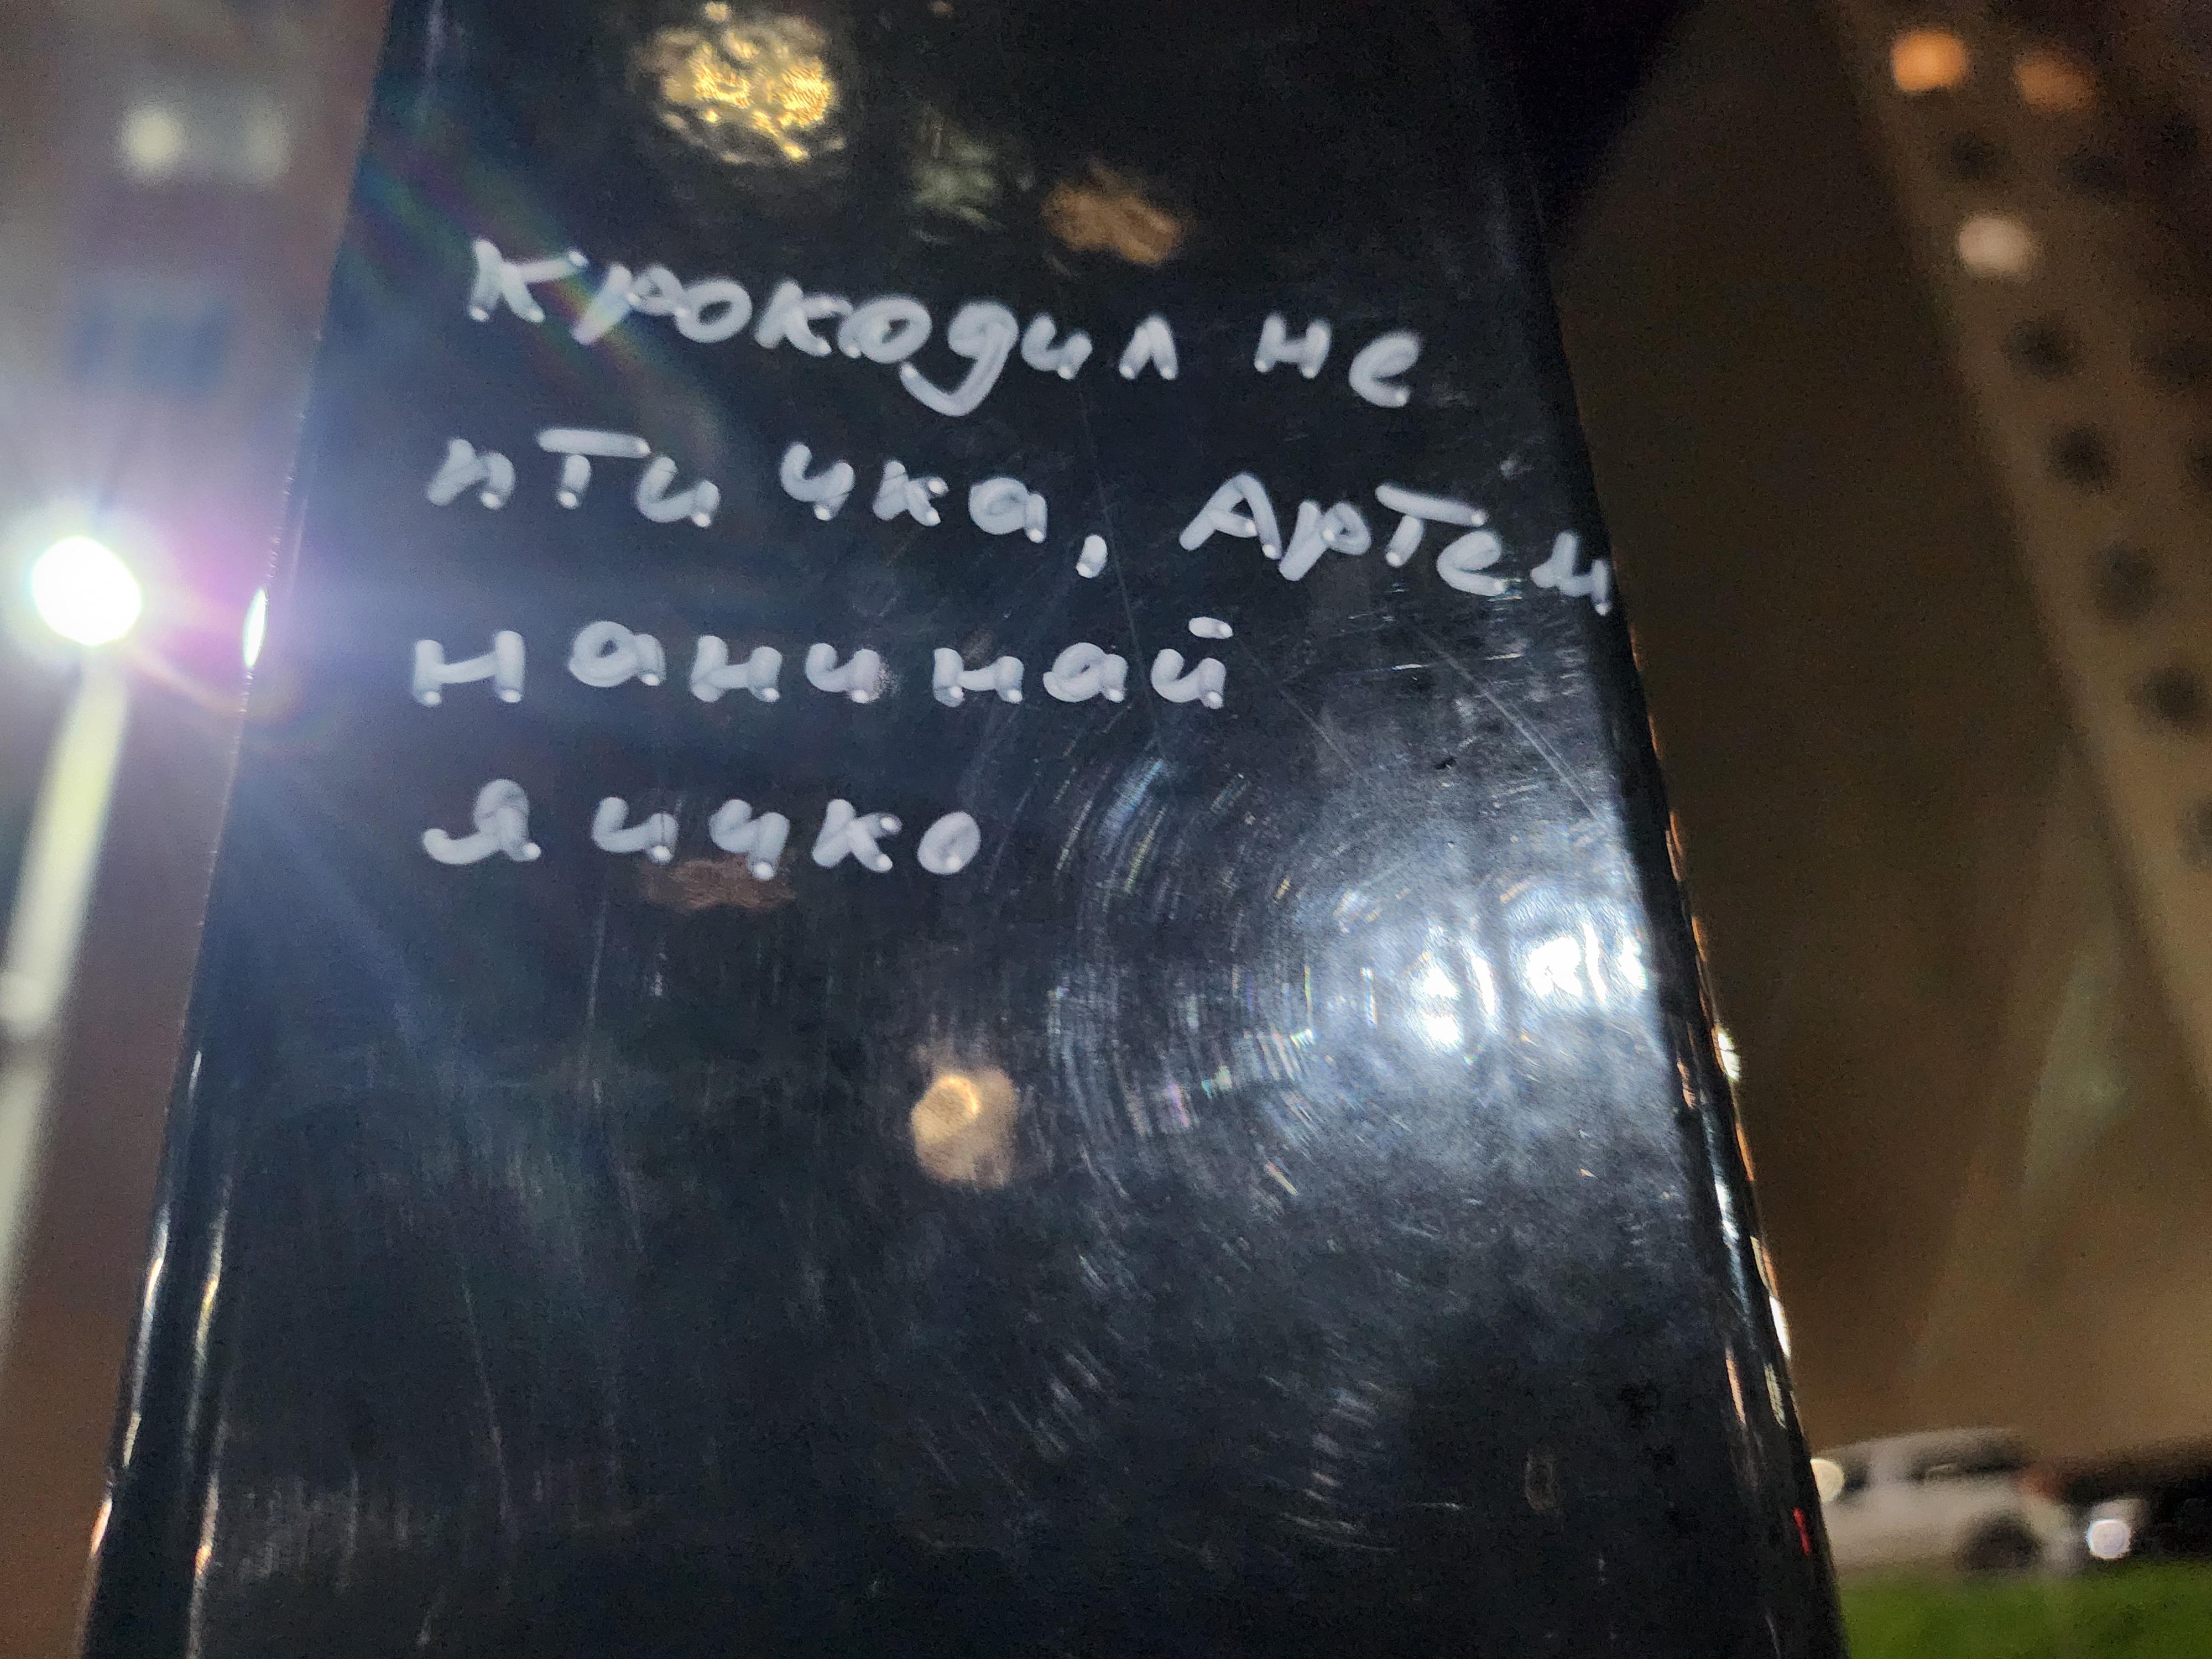 Крокодил не
птичка, Артем
начинай
яичко